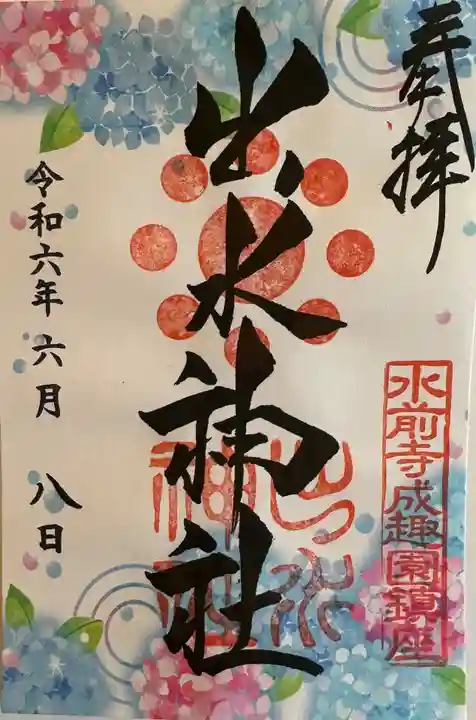 奉拝
水前寺成趣園鎮座
出水神社
出水
神社
令和六年六月八日